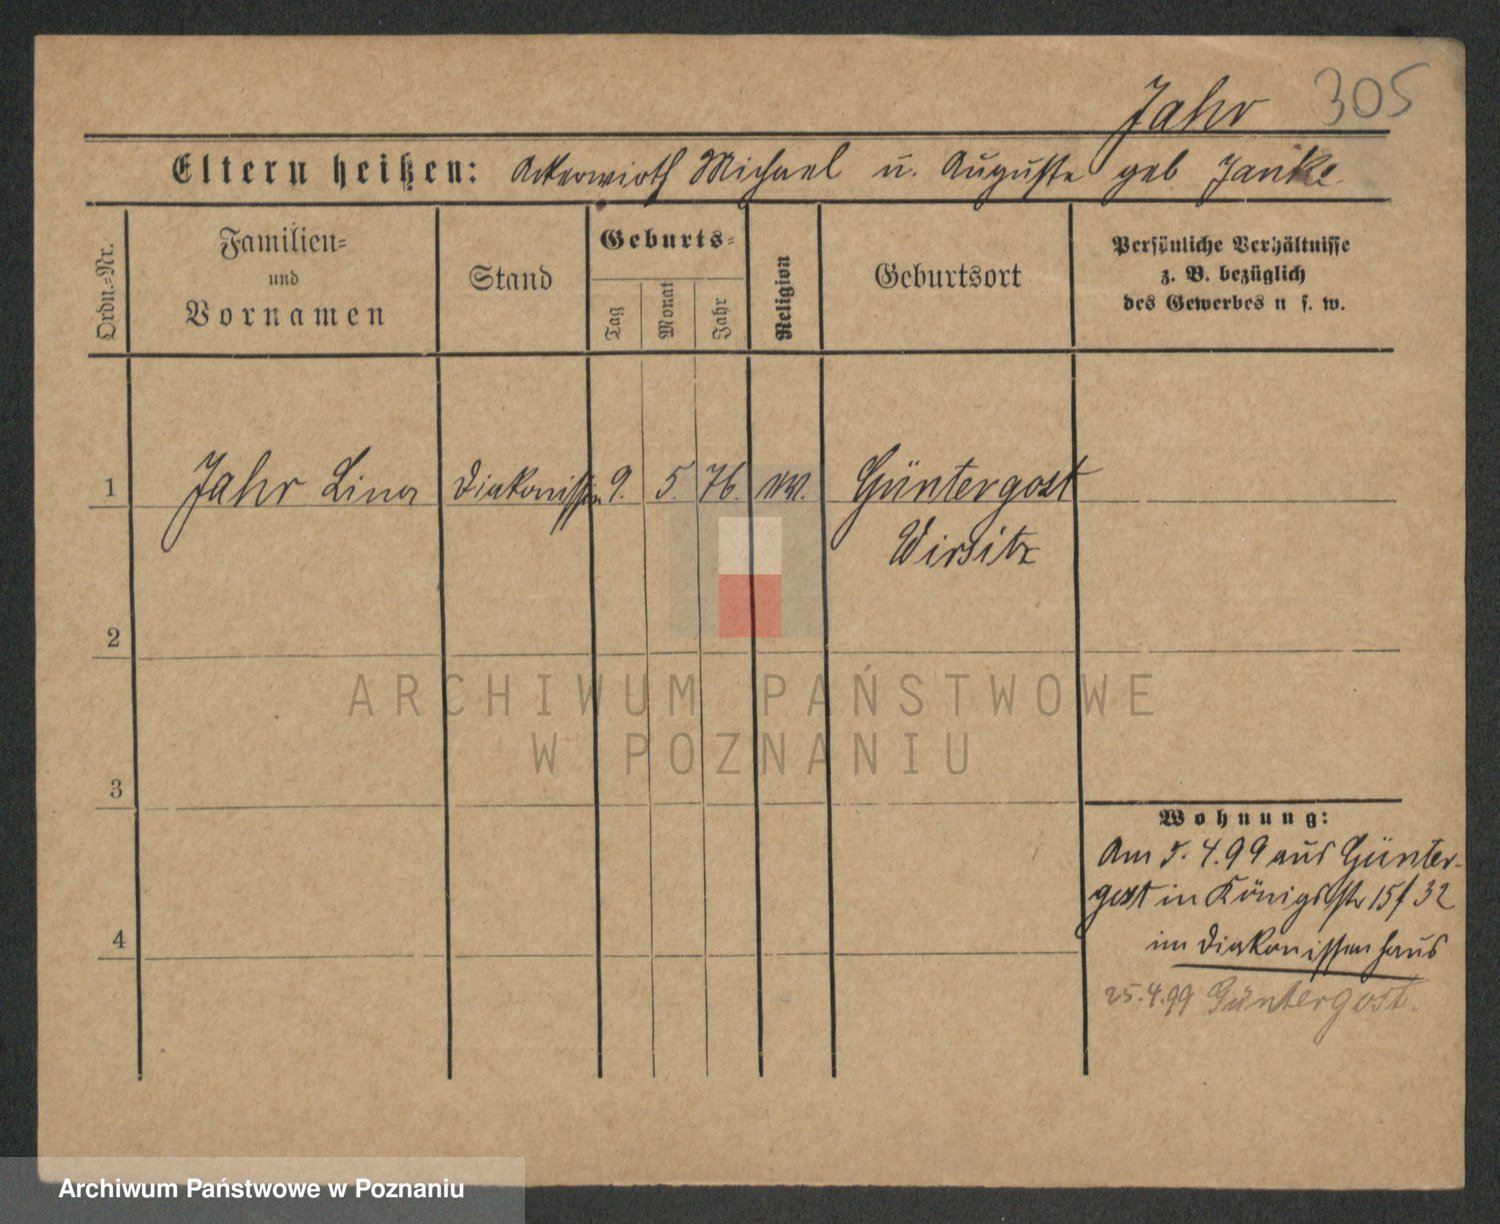 Jahr 305
Eltern heißen: Ackerwirth Michael u. Auguste geb Janke
Ordn.-Nr.
Familien-
und
Vornamen
Stand
Geburts-
Tag
Monat
Jahr
Religion
Geburtsort
Persönliche Verhältnisse
z. B. bezüglich
des Gewerbes u s. w.
1 Jahr Lina Diakonissin 9. 5. 76. ev. Güntergost
Wirsitz
2
3
4
Wohnung:
Am 5. 4. 99 aus Günter-
gost in Königsstr 15/32
im Diakonissenhaus
25.4.99 Güntergost.
ARCHIWUM PAŃSTWOWE
W POZNANIU
Archiwum Państwowe w Poznaniu